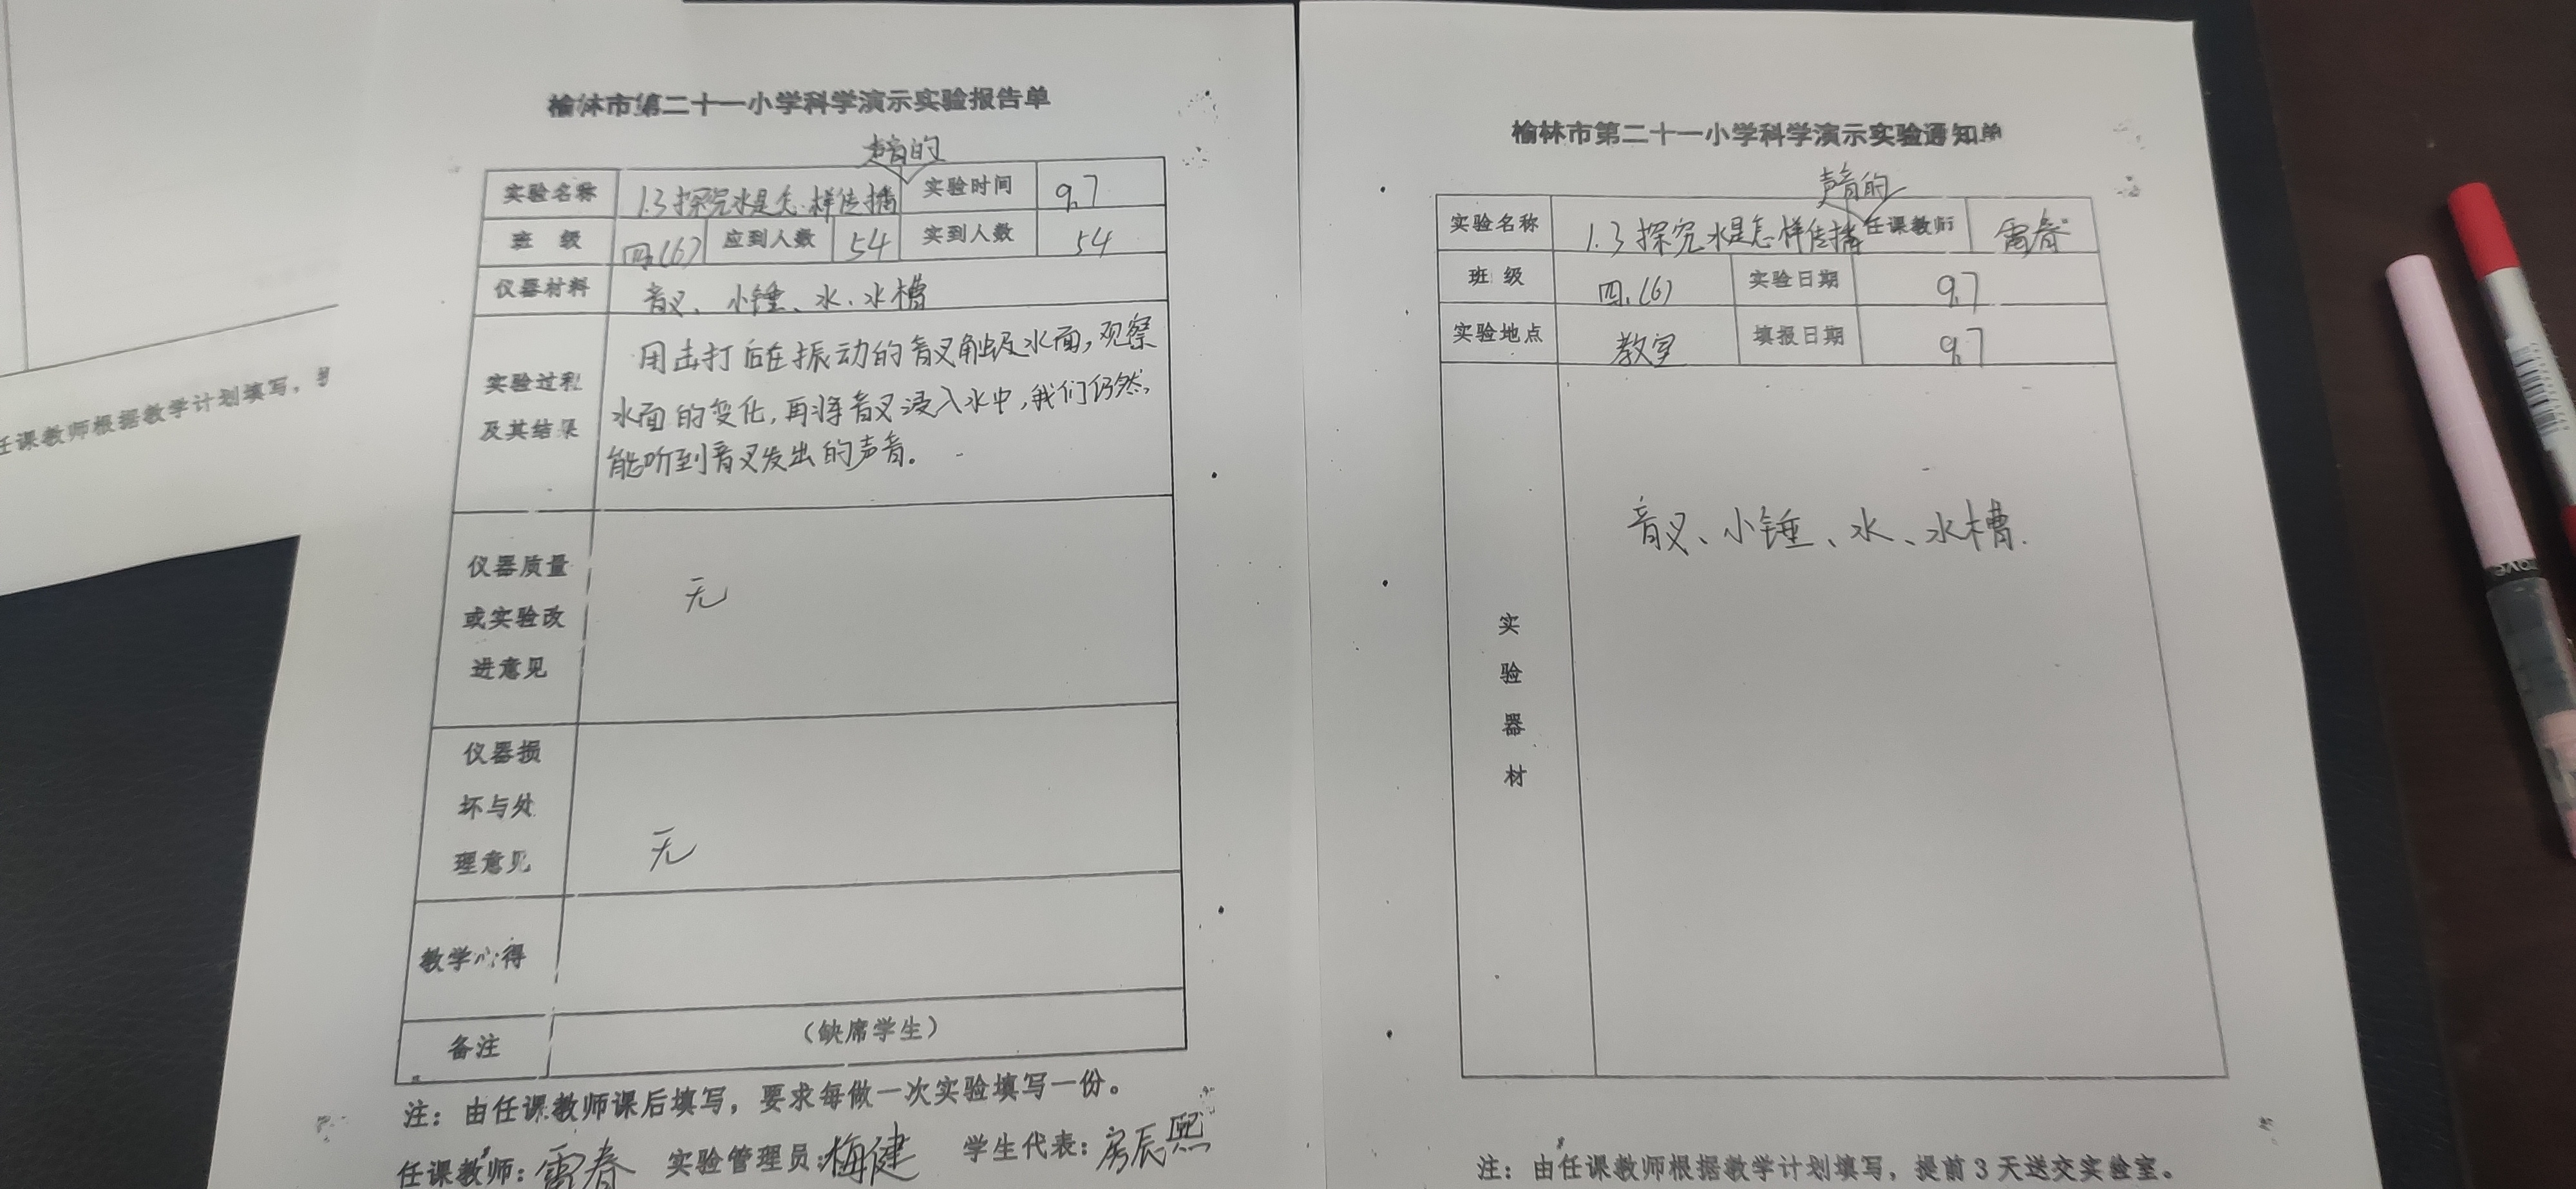 任课教师根据教学计划填写，
榆林市第二十一小学科学演示实验报告单
声音的
实验名称 1.3探究水是怎样传播 实验时间 9.7
班 级 四.(6) 应到人数 54 实到人数 54
仪器材料 音叉、小锤、水、水槽
实验过程
及其结果
用击打后在振动的音叉触及水面，观察
水面的变化，再将音叉浸入水中，我们仍然，
能听到音叉发出的声音。
仪器质量
或实验改
进意见
无
仪器损
坏与处
理意见
无
教学心得
备注 （缺席学生）
注：由任课教师课后填写，要求每做一次实验填写一份。
任课教师：雷春 实验管理员：梅健 学生代表：房辰熙
榆林市第二十一小学科学演示实验通知单
声音的
实验名称 1.3探究水是怎样传播 任课教师 雷春
班 级 四.(6) 实验日期 9.7
实验地点 教室 填报日期 9.7
实
验
器
材
音叉、小锤、水、水槽.
注：由任课教师根据教学计划填写，提前3天送交实验室。